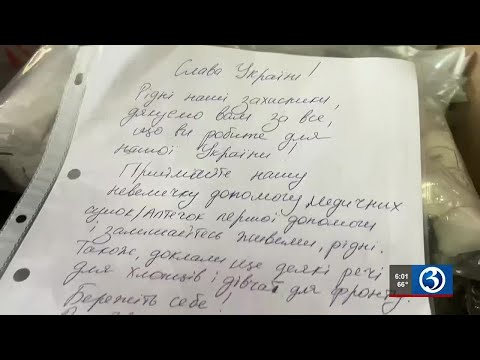 Слава Україні!
Рідні наші захисники,
дякуємо вам за все,
що ви робите для
нашої України!
Приймайте нашу
невеличку допомогу медичних
сумок/Аптечок першої допомоги
і залишайтесь живими, рідні.
Також, доклали ще деякі речі
для хлопців і дівчат для фронту.
Бережіть себе!
6:01
66°
3